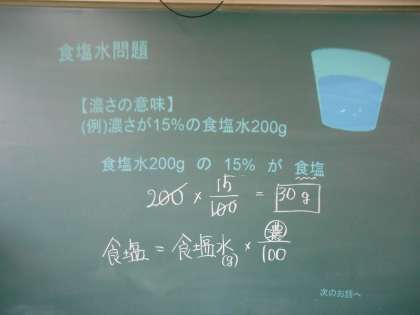 食塩水問題
【濃さの意味】
(例)濃さが15%の食塩水200g
食塩水200g の 15% が 食塩
200 × 15/100 = 30g
食塩 = 食塩水(g) × 濃/100
次のお話へ